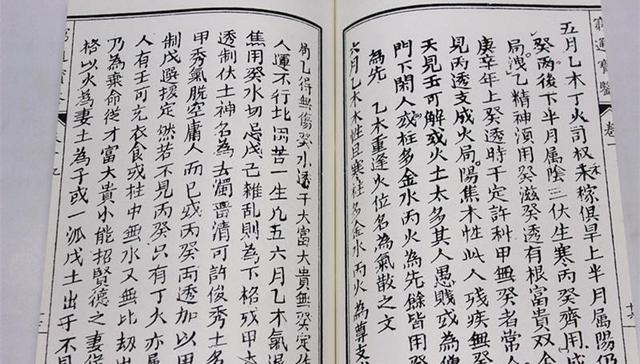 窮通寶鑑 卷一
五月乙木丁火司权禾稼俱旱上半月屬陽乃
癸丙後下半月屬陰三伏生寒丙癸齊用
局洩乙精神湏用癸滋癸透有根富貴双全
庚辛年上癸透時干定許科甲無癸者常
見丙透支成火局陽焦木性此人残疾無癸
天見壬可解或火土太多其人愚賤或為僧
門下閑人或柱多金水丙火為先餘皆用癸
為先 乙木重逢火位名為氣散之文
六月乙木木性且寒柱多金水丙火為尊支
乙得無傷癸水透干大富大貴無癸
人運不行北困苦一生凡五六月乙木氣退
焦用癸水切忌戊己雜乱則為下格残甲
透制伏土神名為去濁㽞清可許俊秀土
甲秀氣脱空庸人而已或丙癸兩透加以甲
制戊選拔定然若不見丙癸只有丁火亦屬
人有壬可充衣食或柱中無水又無比劫出
乃為棄命従才富大貴小能招賢德之妻
格以火為妻土為子或一派戊土出干不見